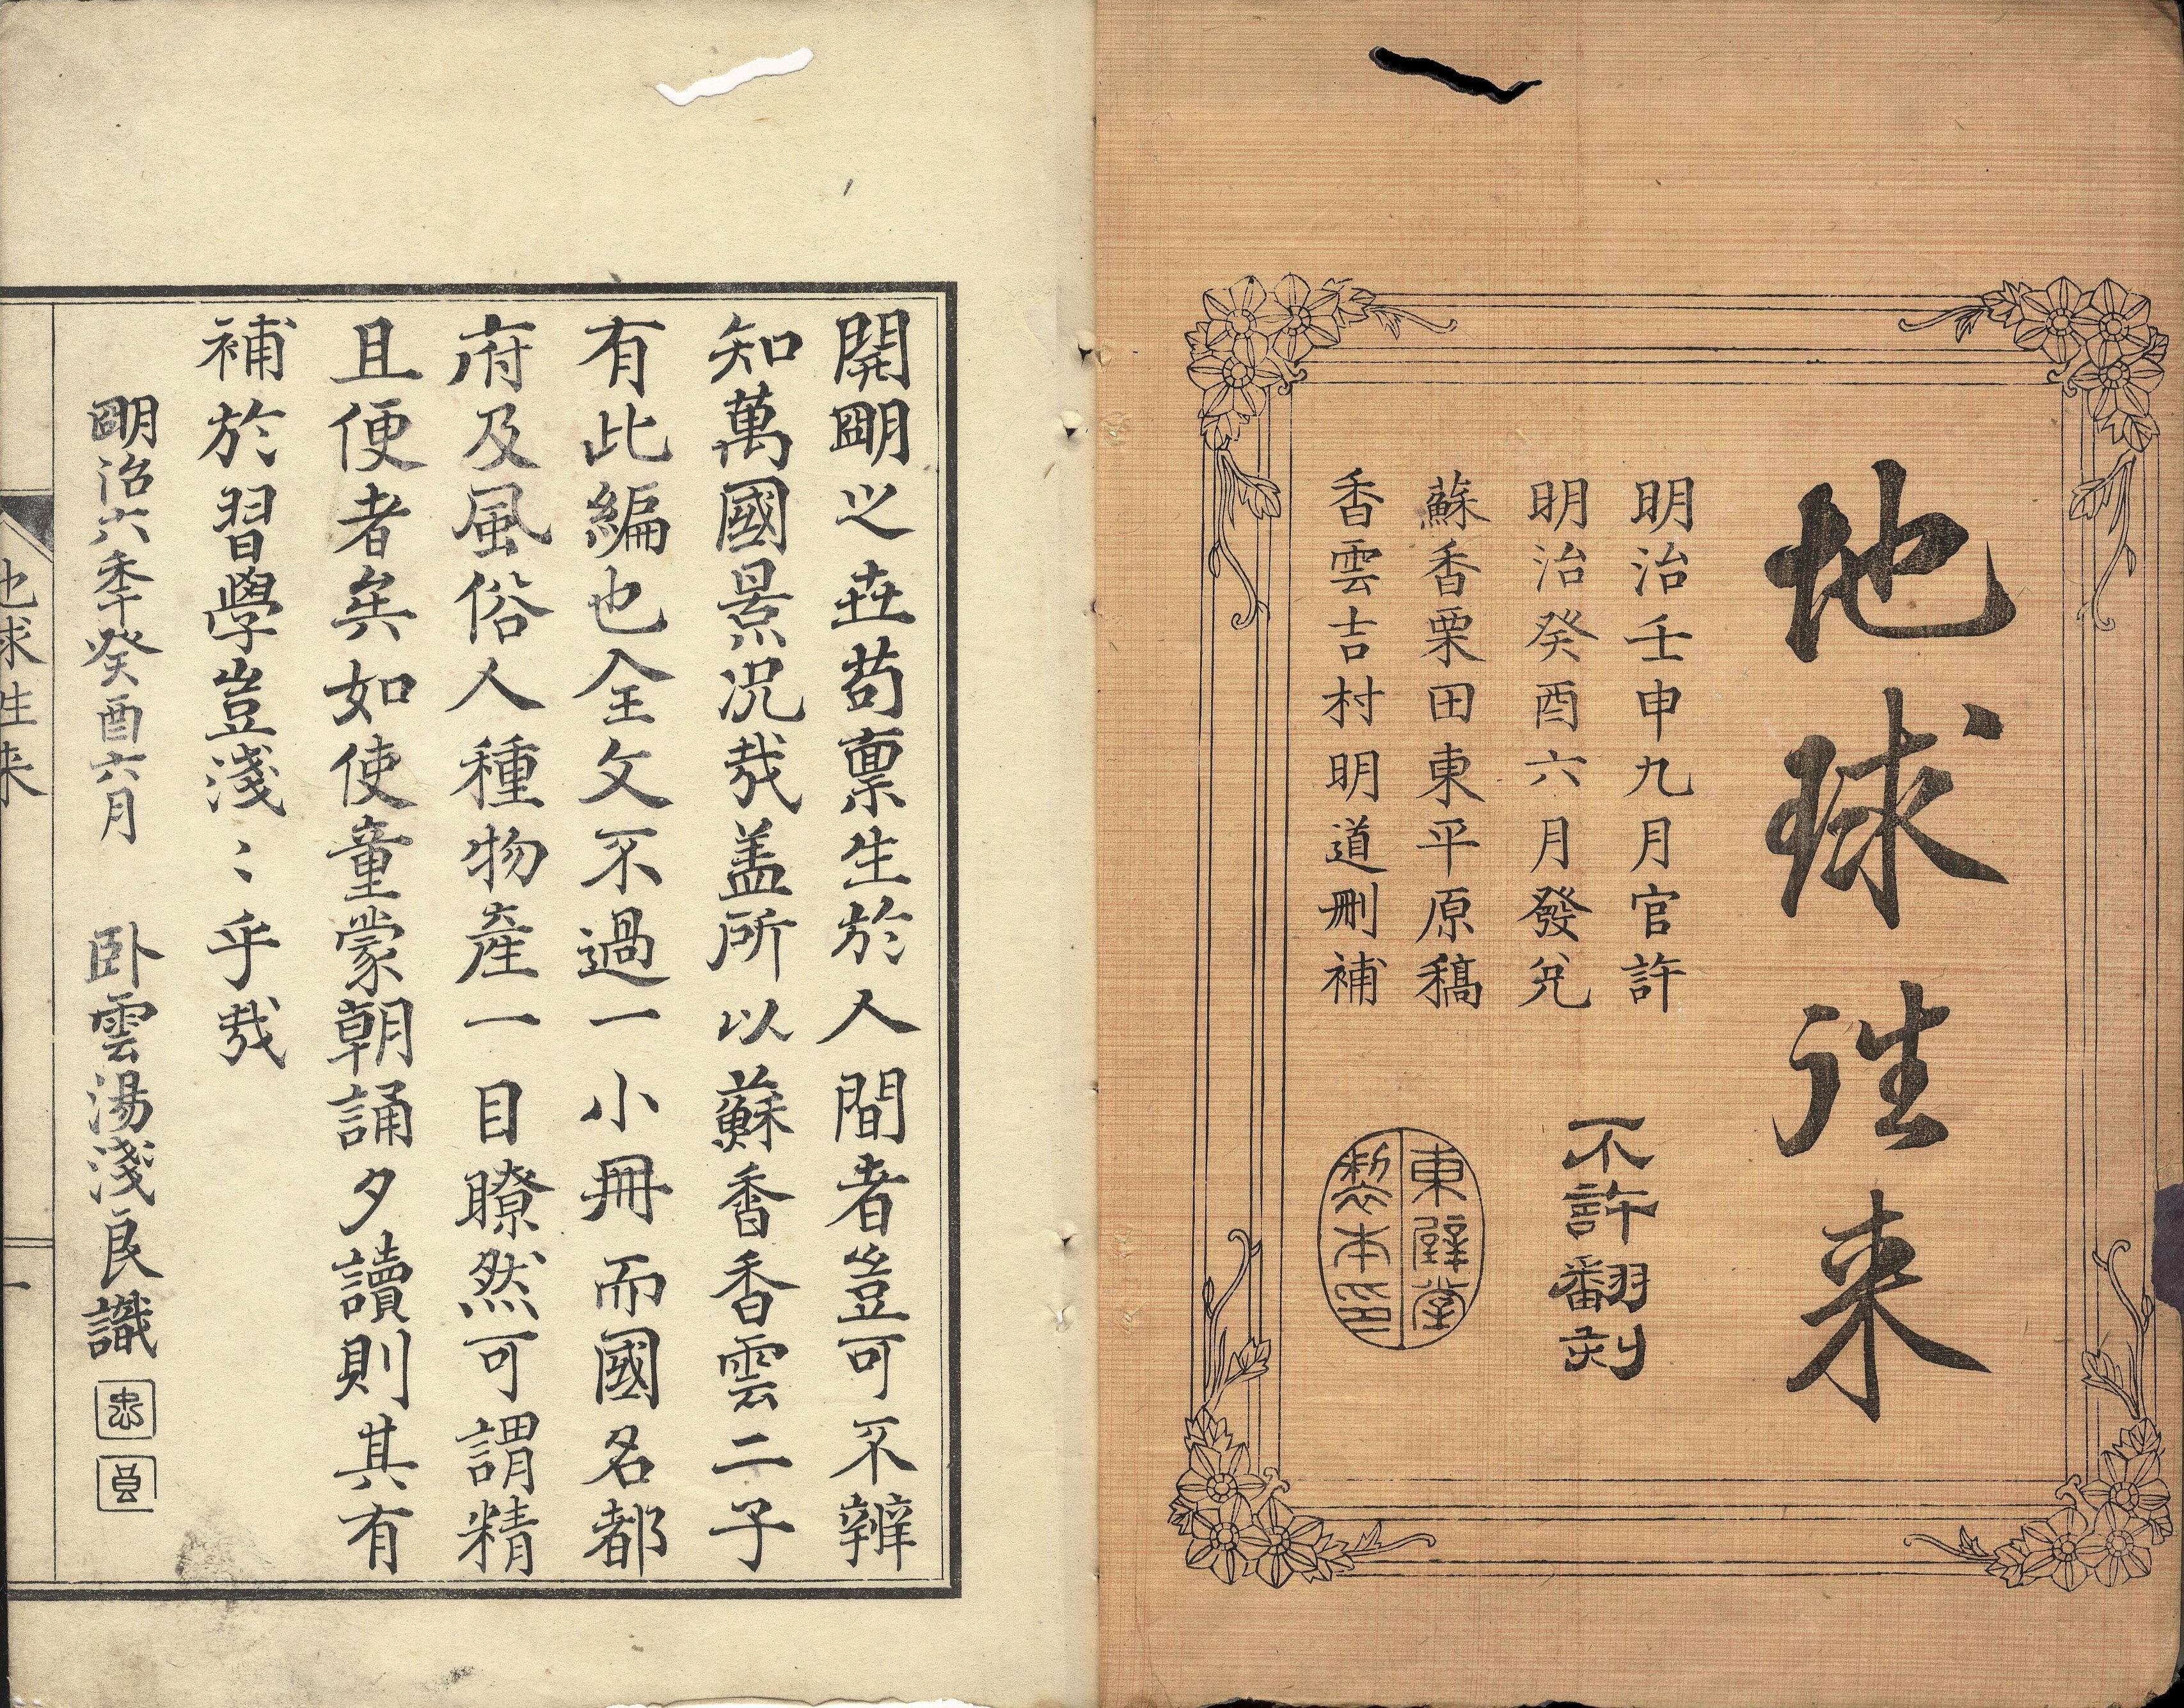 地球往来
明治壬申九月官許
明治癸酉六月發兌
蘇香栗田東平原稿
香雲吉村明道刪補
不許翻刻
東壁堂
製本印
開朙之㔺苟稟生於人間者豈可不辨
知萬國景况㢤盖所以蘇香香雲二子
有此編也全文不過一小冊而國名都
府及風俗人種物產一目瞭然可謂精
且便者矣如使童蒙朝誦夕讀則其有
補於習學豈淺〻乎㢤
朙治六季癸酉六月　卧雲湯淺良識
地球往来
一